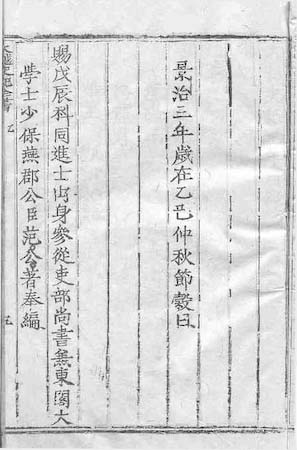 景治三年歲在乙巳仲秋節穀日
賜戊辰科同進士出身參從吏部尚書兼東閣大
學士少保燕郡公臣范公著奉編